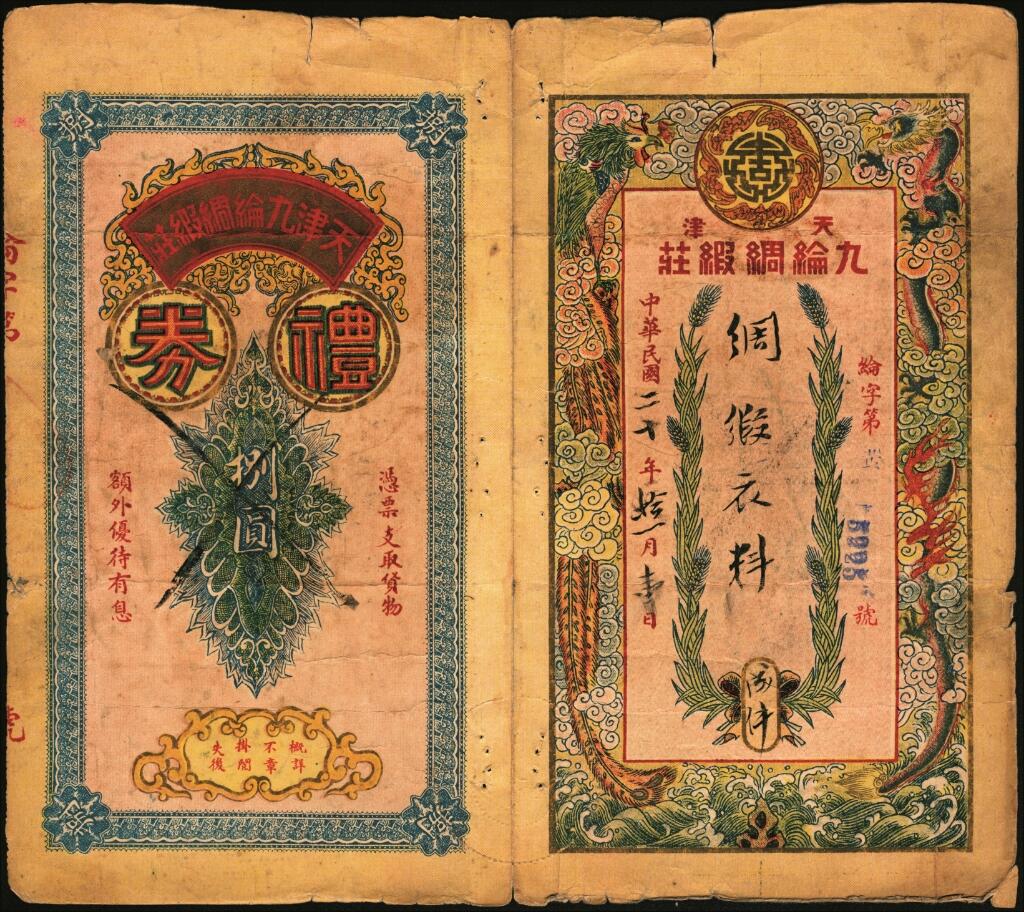 天津
九綸綢緞莊
綸字第
號
綢緞衣料
中華民國二十年拾一月
日
捌
捌
天津九綸綢緞莊
禮券
憑票支取貨物
捌圓
額外優待有息
概不掛失
詳章閱後
捌
捌